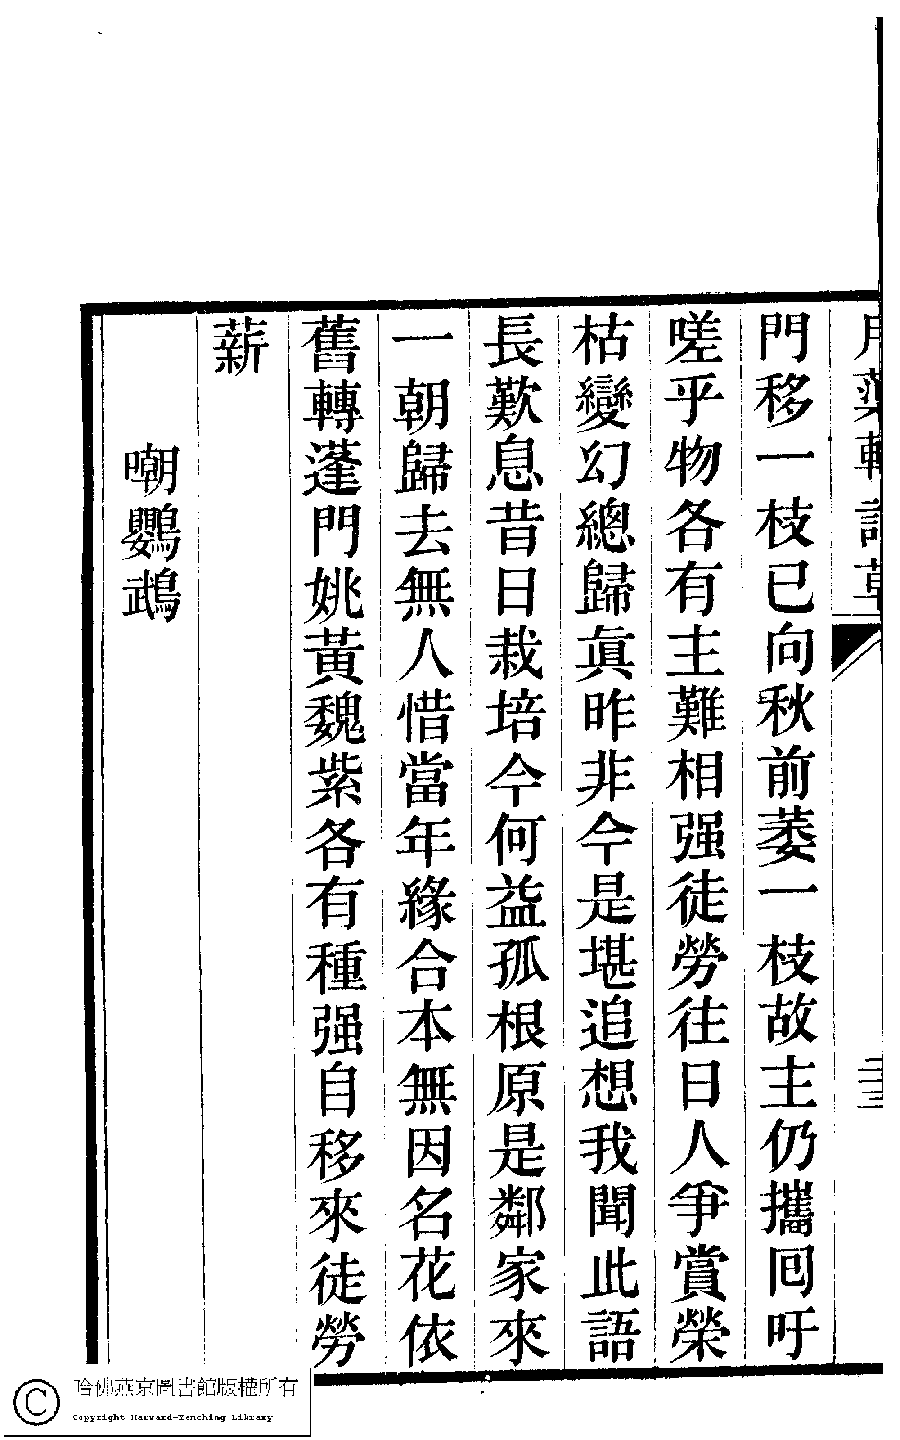 門移一枝已向秋前萎一枝故主仍攜囘吁
嗟乎物各有主難相强徒勞往日人爭賞榮
枯變幻總歸眞昨非今是堪追想我聞此語
長歎息昔日栽培今何益孤根原是鄰家來
一朝歸去無人惜當年緣合本無因名花依
舊轉蓬門姚黃魏紫各有種强自移來徒勞
薪
嘲鸚鵡
哈佛燕京圖書館版權所有
Copyright Harvard-Yenching Library